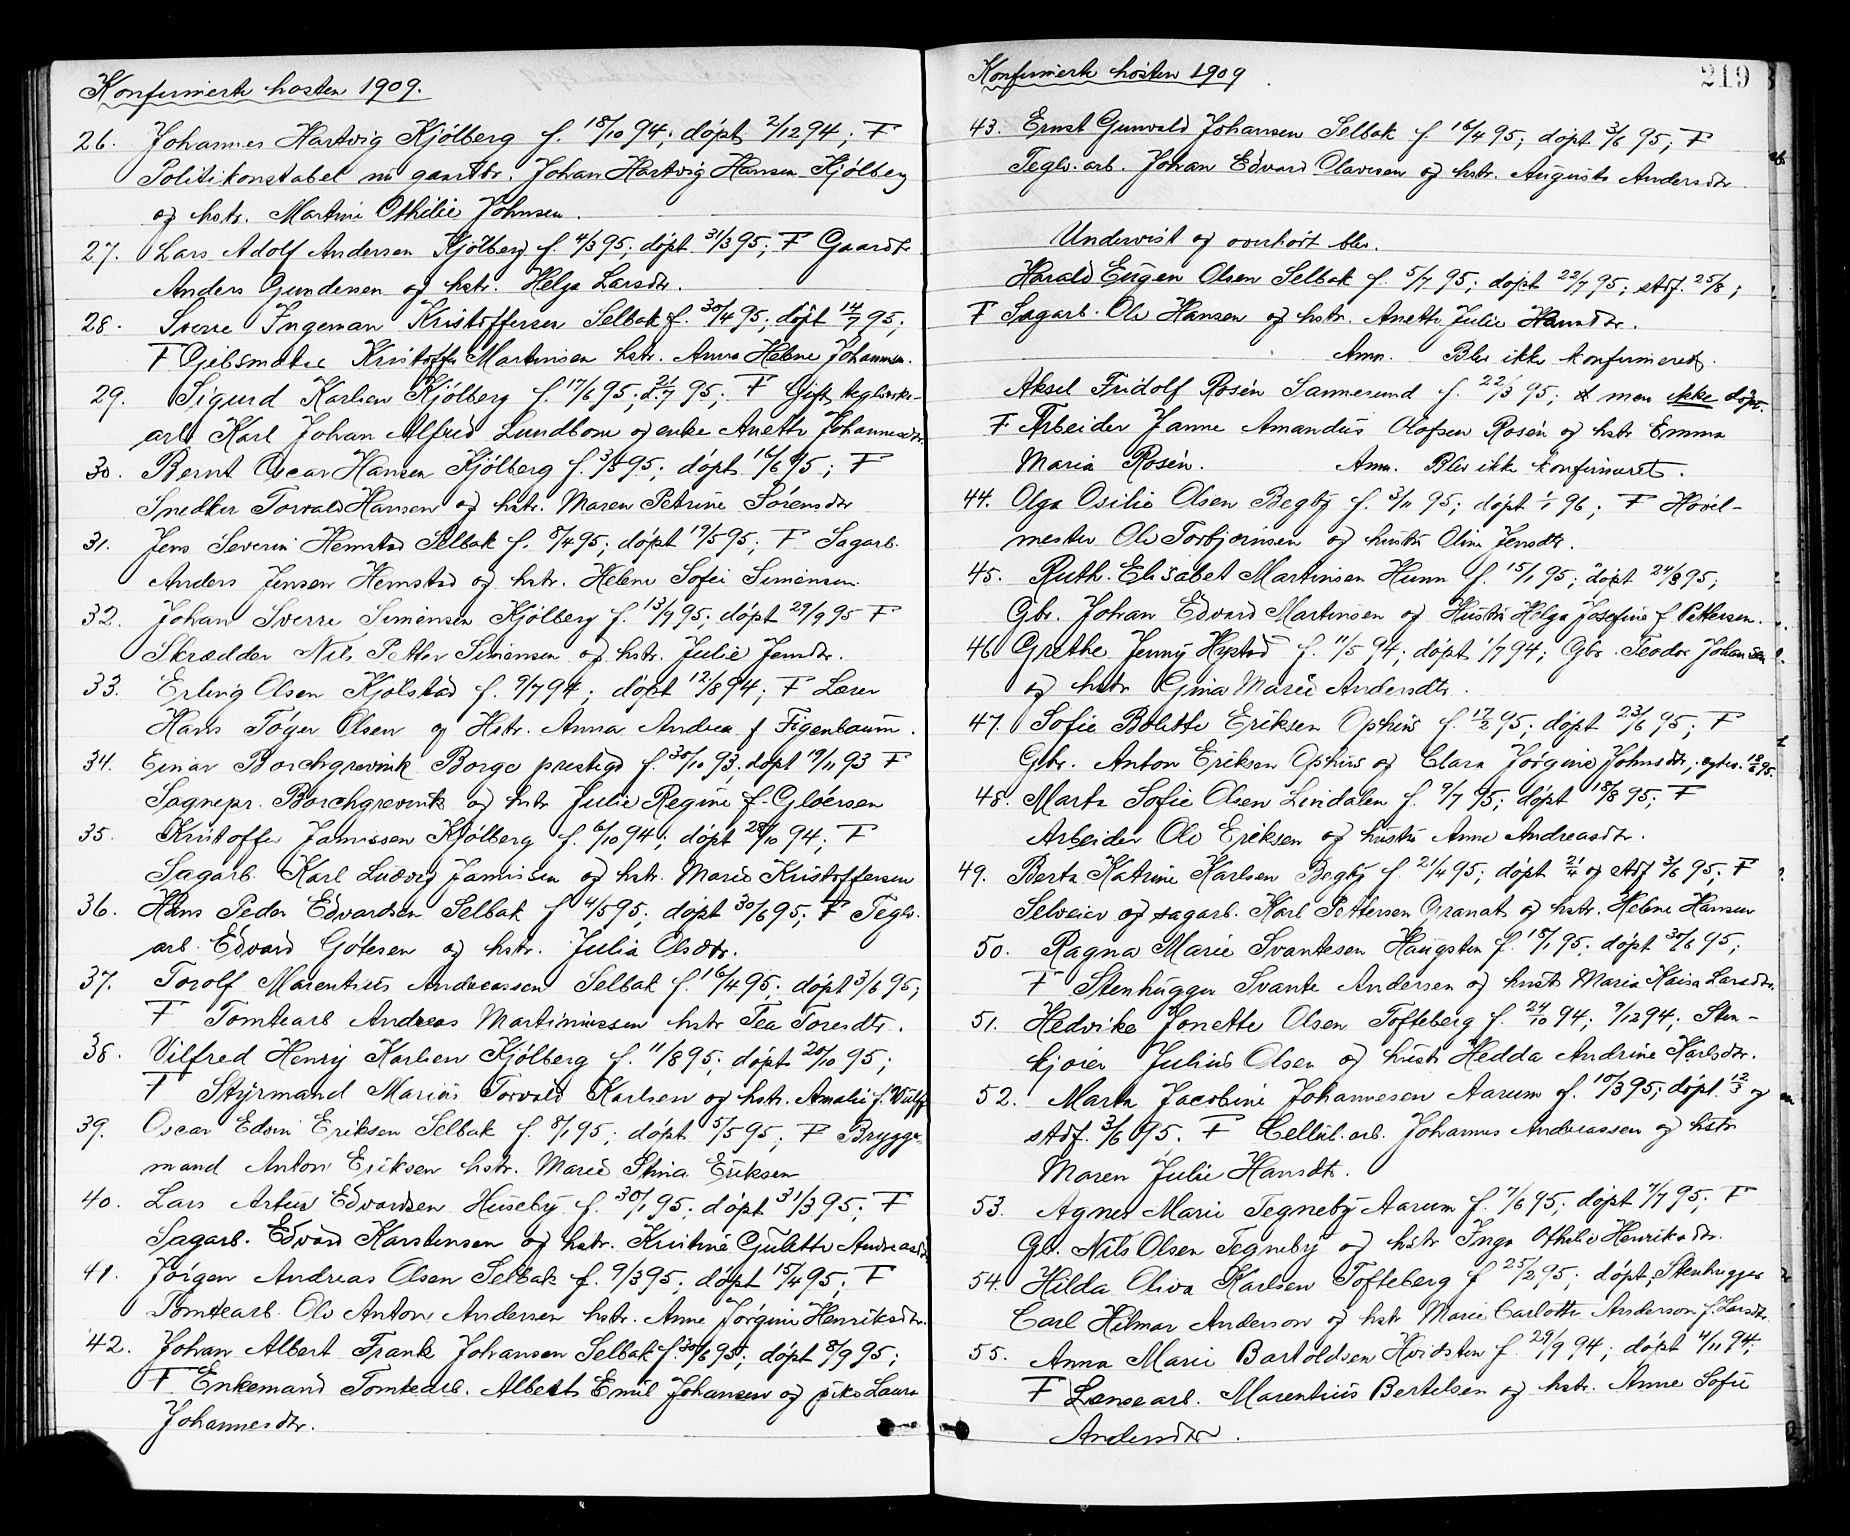 Konfirmerte høsten 1909.
26. Johannes Hartvig Kjølberg f. 18/10 94; døpt 2/12 94; F
Politikonstabel nu gaardbr. Johan Hartvig Hansen Kjølberg
og hstr. Martine Othilie Johnsen.
27. Lars Adolf Andersen Kjølberg f. 4/3 95; døpt 31/3 95; F Gaardbr
Anders Gundersen og hstr. Helga Larsdtr.
28. Sverre Ingeman Kristoffersen Selbak f. 30/4 95; døpt 14/7 95;
F Kristoffer Martinsen hstr. Anna Helene Johannsen.
29. Sigurd Karlsen Kjølberg f. 17/6 95; d. 21/7 95; F Gift teglverks-
arb Karl Johan Alfred Lundbom og enke Anette Johannesdtr
30. Bernt Oscar Hansen Kjølberg f. 3/5 95; døpt 16/6 95; F
Snedker Torvald Hansen og hstr. Maren Petrine Sørensdtr
31. Jens Severin Hemstad Selbak f. 8/4 95; døpt 19/5 95; F Sagarb.
Anders Jensen Hemstad og hstr. Helene Sofie Simensen
32. Johan Sverre Simensen Kjølberg f. 13/9 95; døpt 29/9 95 F
Skrædder Nils Petter Simensen og hstr. Julie Jensdtr.
33. Erling Olsen Kjølstad f. 9/7 94; døpt 12/8 94; F Lærer
Hans Tøger Olsen og Hstr. Anna Andrea f Figenbaum.
34. Einar Borchgrevink Borge prestegd f. 30/10 93. døpt 19/11 93 F
Sognepr. Borchgrevink og hstr Julie Regine f. Gløersen
35. Kristoffer Jamissen Kjølberg f. 6/10 94; døpt 28/10 94; F
Sagarb. Karl Ludvig Jamissen og hstr. Marie Kristoffersen
36. Hans Peder Edvardsen Selbak f 4/5 95; døpt 30/6 95; F Tegls.
arb. Edvard Gøtesen og hstr. Julia Olsdtr.
37. Torolf Marentius Andreassen Selbak f. 16/4 95; døpt 3/6 95;
F Tomtearb Andreas Martiniussen hstr Tea Toresdtr.
38. Vilfred Henry Karlsen Kjølberg f. 11/8 95; døpt 20/10 95;
F Styrmand Marius Torvald Karlsen og hstr. Amalie f. Wulff
39. Oscar Edvin Eriksen Selbak f. 8/1 95; døpt 5/5 95; F Brygge-
mand Anton Eriksen hstr. Marie Stina Eriksen
40. Lars Artur Edvardsen Huseby f. 30/1 95; døpt 31/3 95; F
Sagarb. Edvard Karstensen og hstr. Kristine Gulette Andreasdtr
41. Jørgen Andreas Olsen Selbak f. 9/3 95; døpt 15/4 95; F
Tomtearb. Ole Anton Andersen hstr. Anne Jørgine Henriksdtr.
42. Johan Albert Frank Johansen Selbak f. 30/6 95; døpt 8/9 95;
F Enkemand Tomtearb. Albert Emil Johansen og pike Laura
Johannesdtr.
Konfirmerte høsten 1909
219
43. Ernst Gunvald Johansen Selbak f 16/4 95; døpt 3/6 95; F
Teglv. arb. Johan Edvard Olavesen og hstr. Augusta Andersdtr.
Undervist og overhørt blev.
Harald Eugen Olsen Selbak f. 5/7 95; døpt 22/7 95; stdf. 25/8;
F Sagarb. Ole Hansen og hstr. Anette Julie Hansdtr.
Anm. Blev ikke konfirmeret.
Aksel Fridolf Rosén Sannesund f. 22/3 95; men ikke døpt.
F Arbeider Janne Amandus Olofsen Rosén og hstr Emma
Maria Rosén. Anm. Blev ikke konfirmeret.
44. Olga Osilie Olsen Begby f. 3/11 95; døpt 1/1 96; F Høvel-
mester Ole Torbjørnsen og hustru Oline Jensdtr.
45. Ruth Elisabet Martinsen Hunn f. 15/1 95; døpt 24/3 95;
Gbr. Johan Edvard Martinsen og Hustru Helga Josefine f. Pettersen.
46 Grethe Jenny Hystad f. 11/5 94; døpt 1/7 94; Gbr. Teodor Johansen
og hstr Gina Marie Andersdtr.
47. Sofie Bolette Eriksen Ophus f. 17/2 95; døpt 23/6 95; F
Gbr. Anton Eriksen Ophus og Clara Jørgine Johnsdtr;
48. Marta Sofie Olsen Lindalen f. 9/7 95; døpt 18/8 95; F
Arbeider Ole Eriksen og hustru Anne Andreasdtr.
49. Berta Katrine Karlsen Begby f. 21/4 95; døpt 21/4 og stdf 3/6 95; F
Selveier og sagarb. Karl Pettersen Granat og hstr. Helene Hansen
50. Ragna Marie Svantesen Haugsten f. 18/1 95; døpt 30/6 95;
F Stenhugger Svante Andersen og hustr Maria Kaisa Larsdtr.
51. Hedvike Jonette Olsen Tofteberg f. 24/10 94; 9/12 94; Sten-
kjører Julius Olsen og hustr Hedda Andrine Karlsdtr.
52. Marta Jacobine Johannesen Aarum f. 10/3 95; døpt 12/3 og
stdf. 3/6 95. F Cellul. arb. Johannes Andreassen og hstr
Maren Julie Hansdtr.
53. Agnes Marie Tegneby Aarum f. 7/6 95; døpt 7/7 95; F
Gb. Nils Olsen Tegneby og hstr Inga Othilie Henriksdtr.
54. Hilda Oliva Karlsen Tofteberg f 25/2 95; døpt; Stenhugger
Carl Hilmar Anderson og hstr Marie Carlotte Anderson f. Larsdtr
55. Anna Marie Bartoldsen Hvidsten f. 29/9 94; døpt 4/11 94;
F Lensearb. Marentius Bertelsen og hstr. Anne Sofie
Andersdtr.